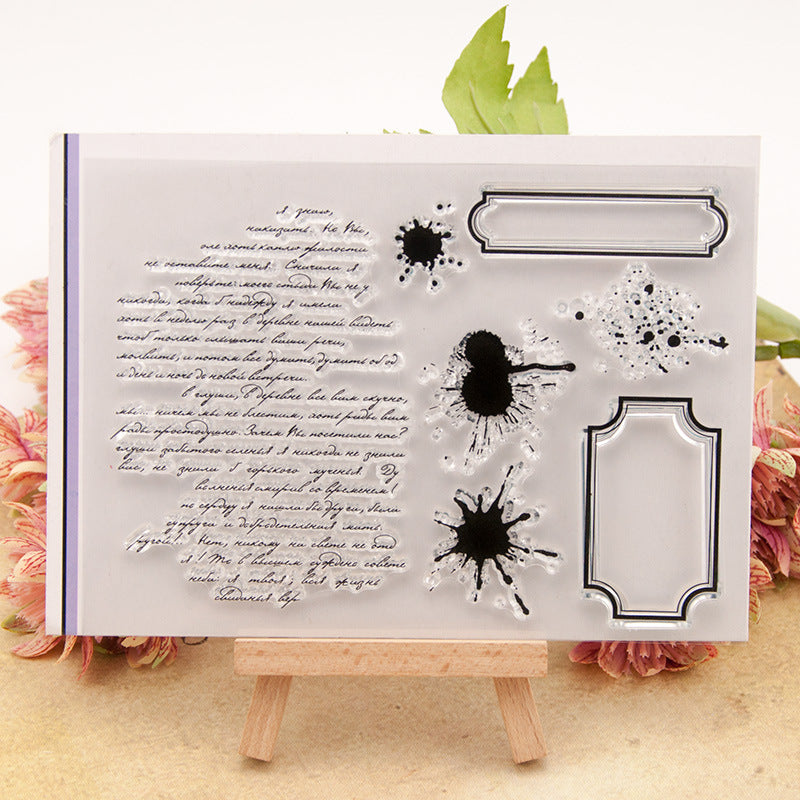 я знаю,
наказать. Но Вы,
оле хоть каплю жалости
не оставите меня. Сначала я
поверьте: моего стыда Вы не у
никогда, когда б надежду я имела
хоть в неделю раз в деревне нашей видеть
чтоб только слышать ваши речи,
молвить, и потом все думать, думать об од
и день и ночь до новой встречи.
в глуши, в деревне все вам скучно,
мы... ничем мы не блестим, хоть рады вам
рады простодушно. Зачем Вы посетили нас?
глуши забытого селенья я никогда не знали
вас, не знали б горького мученья. Ду
волненья смирив со временем!
по сердцу я нашла бы друга, была
супруга и добродетельная мать.
ругой!.. Нет, никому на свете не отд
я! То в вышнем суждено совете
неба: я твоя; вся жизнь
свиданья вер